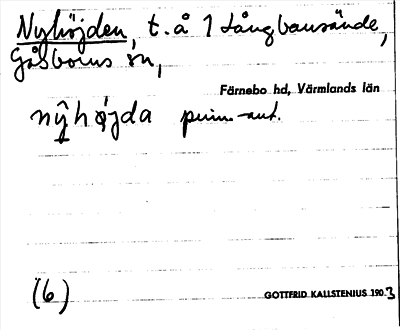 Nyhöjden, t. å 1 Långbansände,
Gåsborns sn,
Färnebo hd, Värmlands län
nŷhøjda prim-aut.
(6)
GOTTFRID KALLSTENIUS 1903